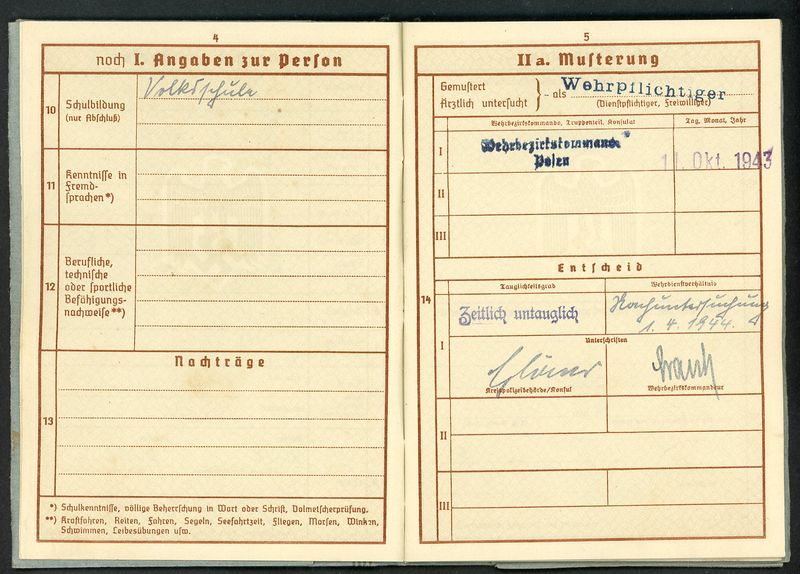 4
noch I. Angaben zur Person
10
Schulbildung
(nur Abschluß)
Volksschule
11
Kenntnisse in
Fremd-
sprachen *)
12
Berufliche,
technische
oder sportliche
Befähigungs-
nachweise **)
Nachträge
13
*) Schulkenntnisse, völlige Beherrschung in Wort oder Schrift, Dolmetscherprüfung.
**) Kraftfahren, Reiten, Fahren, Segeln, Seefahrtzeit, Fliegen, Morsen, Winken,
Schwimmen, Leibesübungen usw.
5
II a. Musterung
Gemustert
Ärztlich untersucht } - als Wehrpflichtiger
(Dienstpflichtiger, Freiwilliger)
Wehrbezirkskommando, Truppenteil, Konsulat
Tag, Monat, Jahr
I
Wehrbezirkskommando
Posen
11. Okt. 1943
II
III
Entscheid
14
Tauglichkeitsgrad
Wehrdienstverhältnis
Zeitlich untauglich
Nachuntersuchung
1. 4. 1944.
I
Unterschriften
Kreispolizeibehörde/Konsul
Wehrbezirkskommandeur
II
III